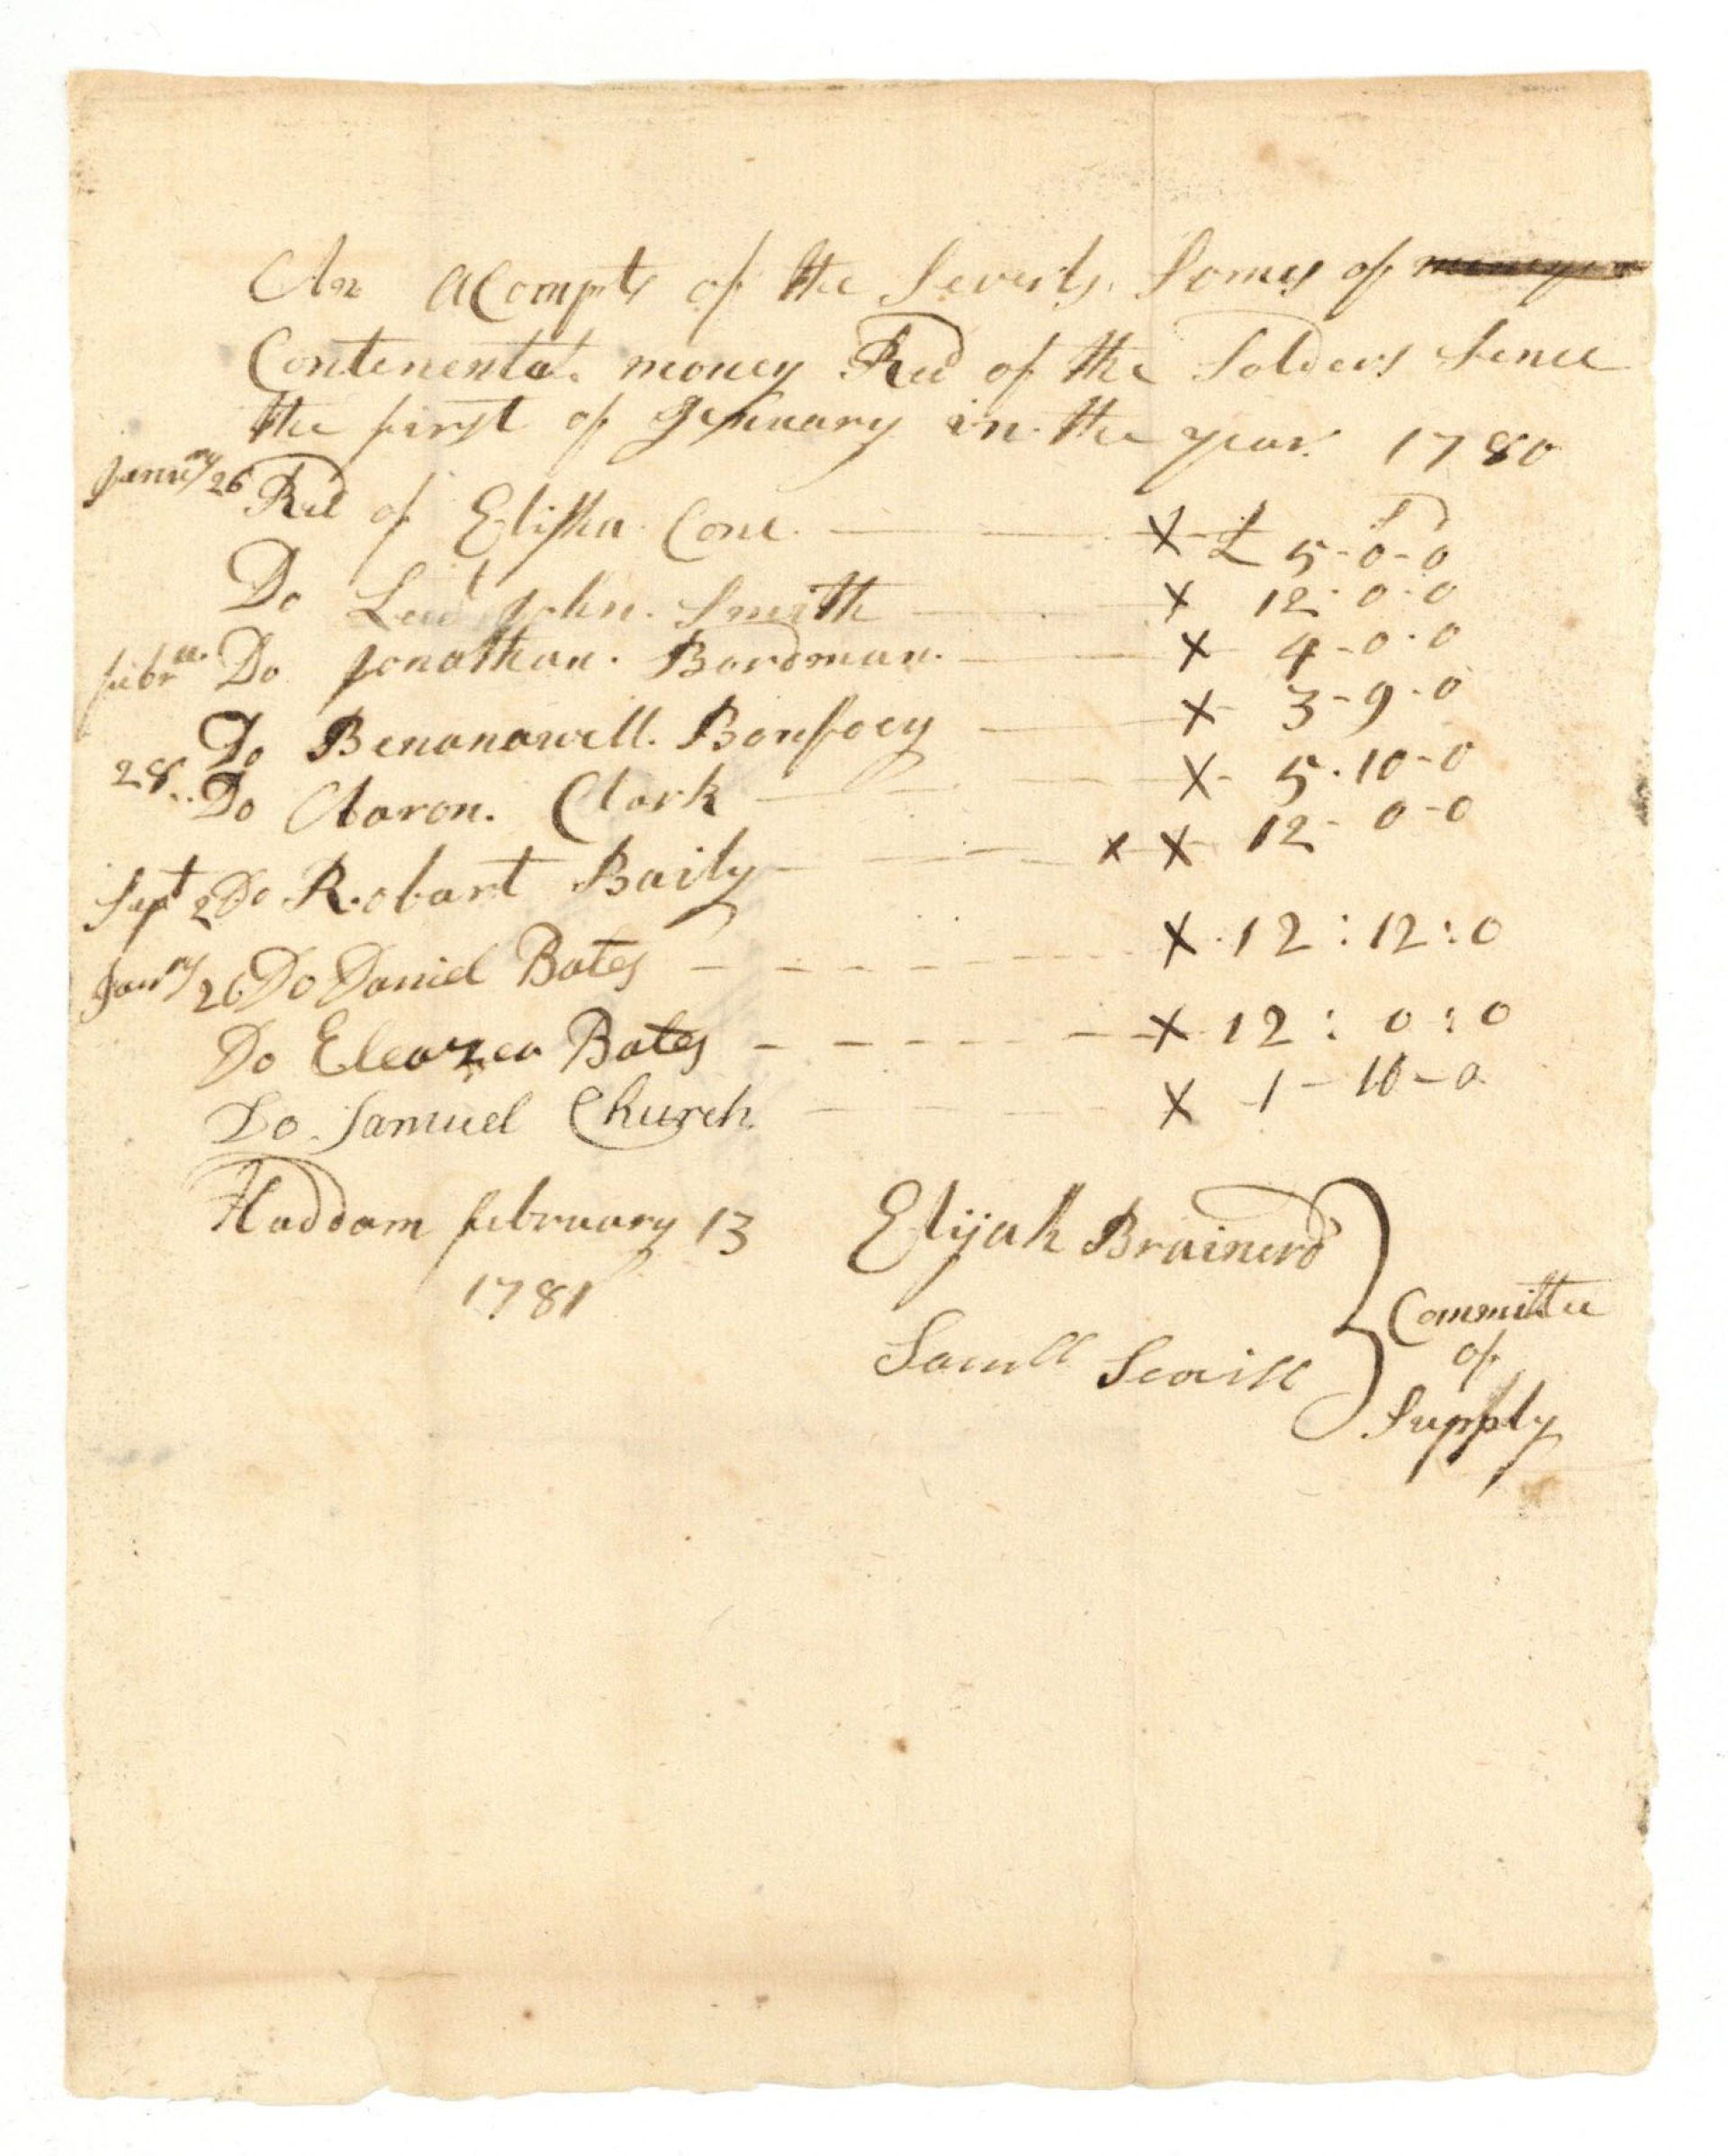 An acompts of the Severls Somes of
Contenental money Recd of the Solders Sence
the first of Jennuary in the year 1780
Janury 26 Recd of Elisha Cone X £ 5-0-0
Do Leut John Smith X 12-0-0
febr Do Jonathan Bordman X 4-0-0
Do Benanawell Bonfoey X 3-9-0
28 Do Aaron Clark X 5-10-0
Sept 2 Do Robart Baily X X 12-0-0
Janry 26 Do Daniel Bates X 12:12:0
Do Eleazer Bates X 12:0:0
Do Samuel Church X 1-10-0
Haddam february 13 Elijah Brainerd
1781
Samll Scovill
Committee
of
Supply